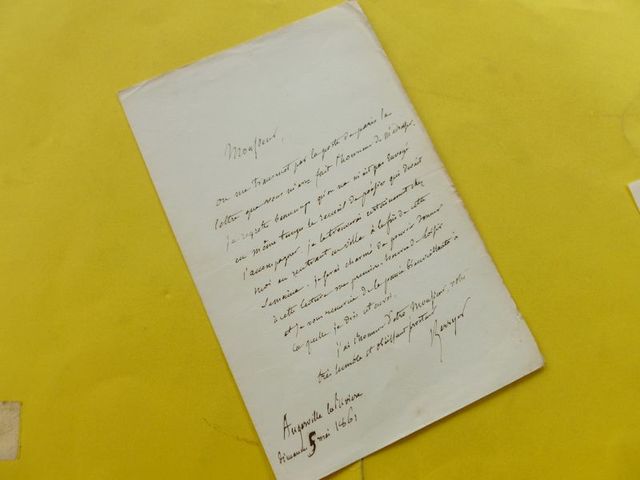 Monsieur,
on me transmet par la poste de paris la
lettre que vous m'avez fait l'honneur de m'écrire.
je regrette beaucoup qu'on ne m'ait pas envoyé
en même temps le recueil de poésies qui devait
l'accompagner. je le trouverai certainement chez
moi en rentrant en ville à la fin de cette
semaine. je serai charmé de pouvoir donner
à cette lecture mes premiers momens de loisir
et je vous remercie de la pensée bienveillante à
la quelle je dois cet envoi.
j'ai l'honneur d'être Monsieur votre
très humble et obéissant serviteur
Berryer
Augerville la Riviere
dimanche 5 mai 1861